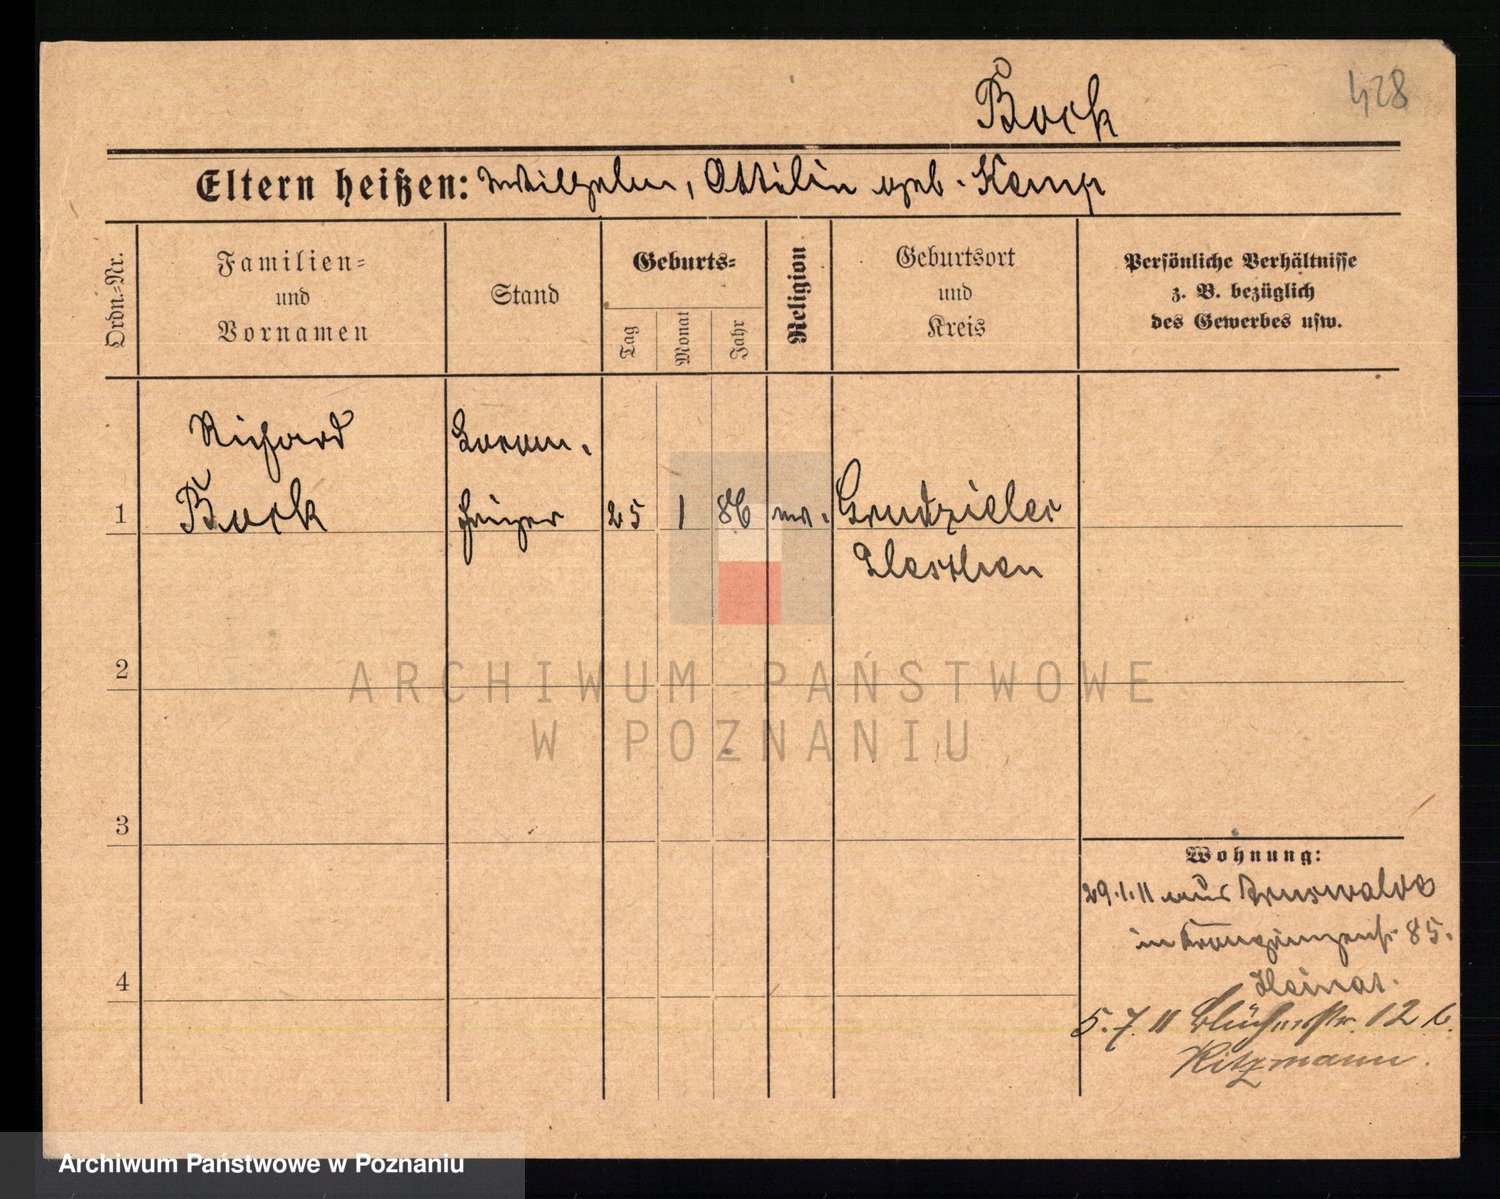 Bock
428
Eltern heißen: Wilhelm, Ottilie geb. Kemp
Ordn.-Nr.
Familien-
und
Vornamen
Stand
Geburts-
Tag
Monat
Jahr
Religion
Geburtsort
und
Kreis
Persönliche Verhältnisse
z. B. bezüglich
des Gewerbes usw.
Richard
Bock
Locom.
heizer
1
25
1
86
ev.
Grudzielec
Pleschen
2
3
4
Wohnung:
29.1.11 aus Arnswalde
in Kronprinzenstr 85.
5.7.11 Blücherstr. 12 b.
Ritzmann.
ARCHIWUM PAŃSTWOWE
W POZNANIU
Archiwum Państwowe w Poznaniu